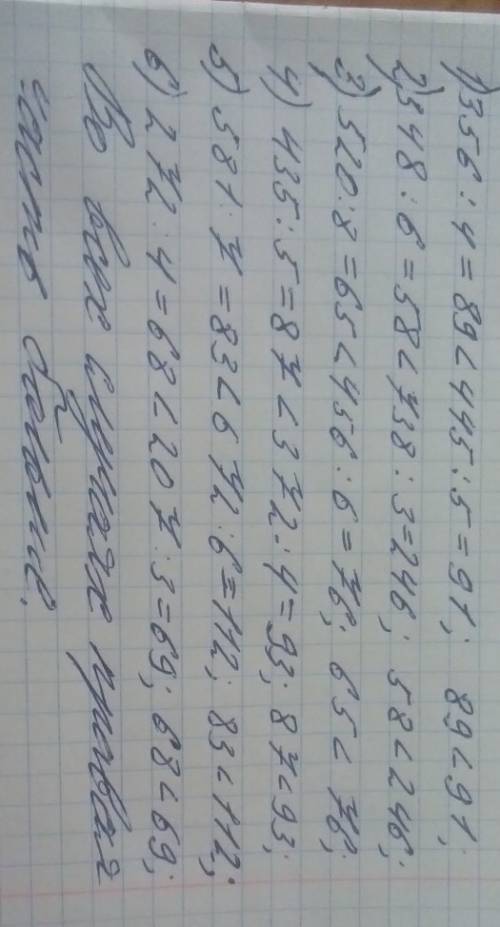 1) 356 : 4 = 89 < 445 : 5 = 91; 89 < 91;
2) 348 : 6 = 58 < 738 : 3 = 246; 58 < 246;
3) 520 : 8 = 65 < 456 : 6 = 76; 65 < 76;
4) 435 : 5 = 87 < 372 : 4 = 93; 87 < 93;
5) 581 : 7 = 83 < 672 : 6 = 112; 83 < 112;
6) 272 : 4 = 68 < 207 : 3 = 69; 68 < 69;
Во всех случаях правая
часть больше.